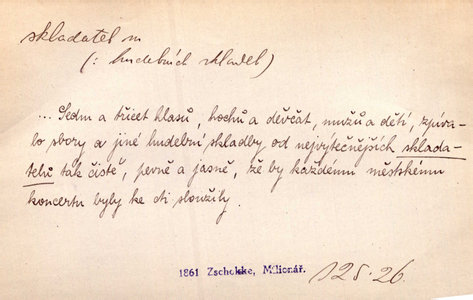 skladatel m
(: hudebních skladeb)
... Sedm a třicet hlasů, hochů a děvčat, mužů a dětí, zpíva-
lo sbory a jiné hudební skladby od nejvýtečnějších sklada-
telů tak čistě, pevně a jasně, že by každému městskému
koncertu byly ke cti sloužily.
1861 Zschokke, Milionář.
125·26